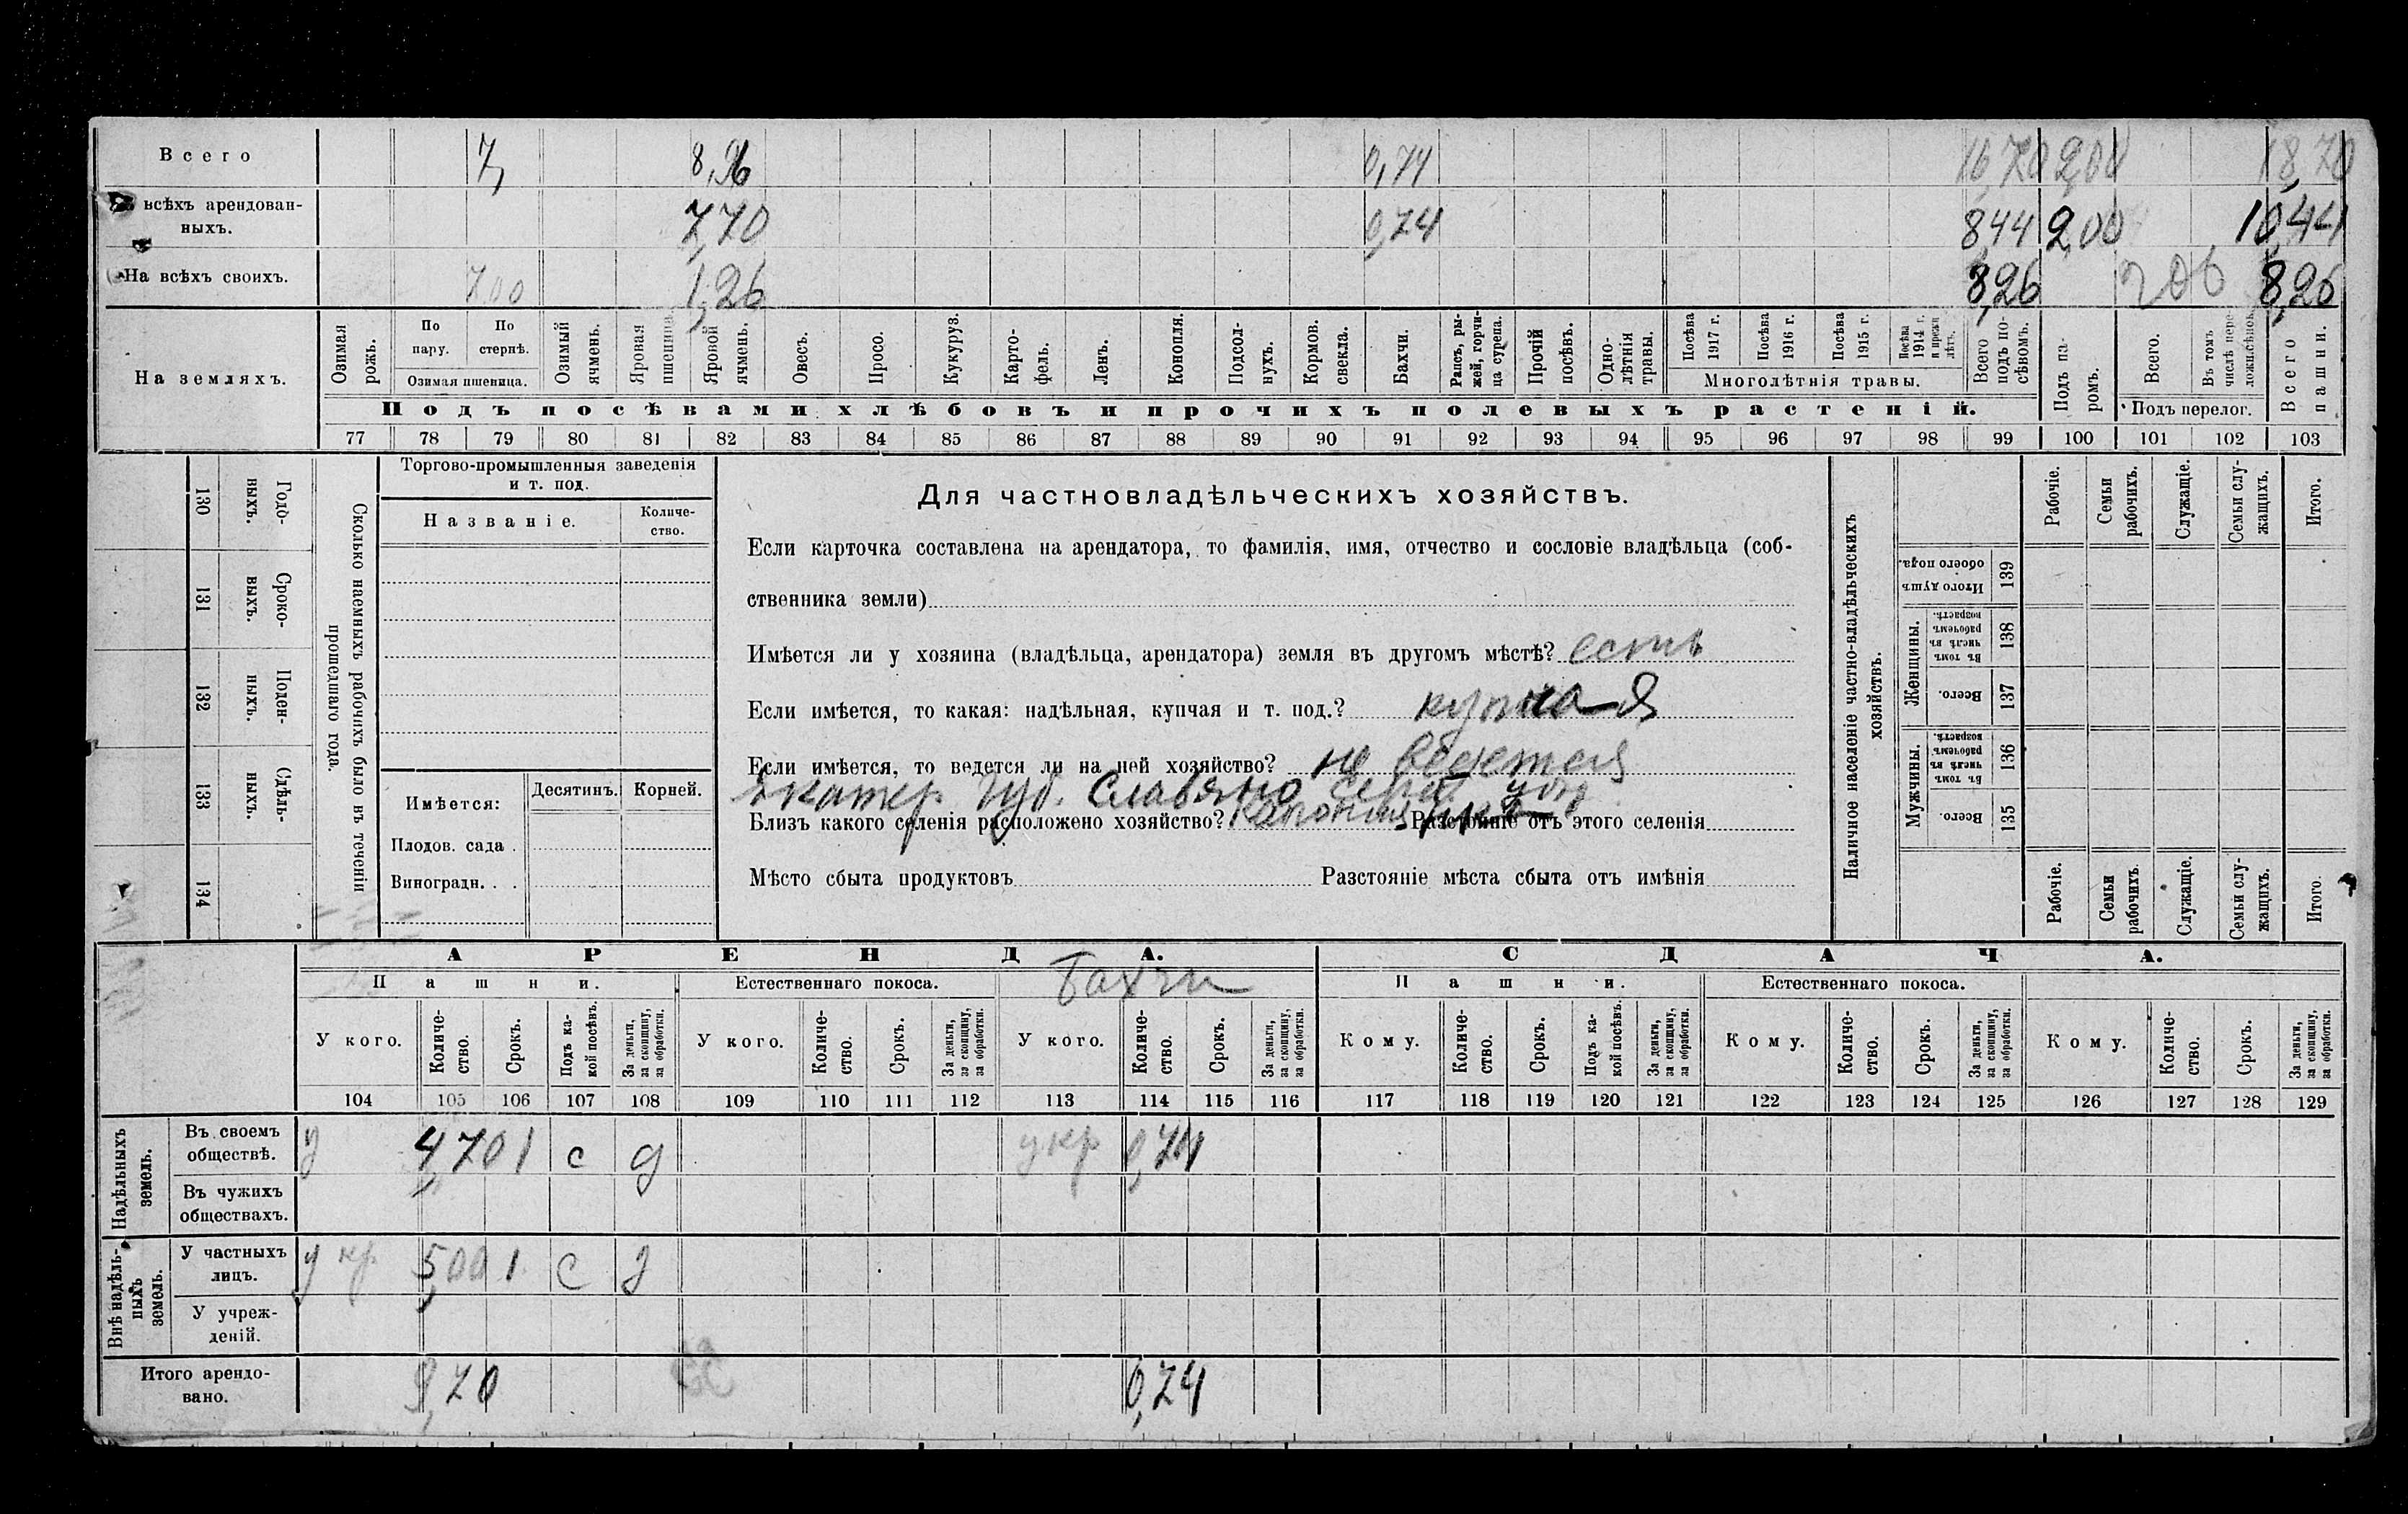 Всего 7, 8,96 0,74 16,70 2,00 18,70
всѣхъ арендован-
ныхъ. 7,70 0,74 8,44 2,00 10,44
На всѣхъ своихъ. 7,00 1,26 8,26 8,26
На земляхъ.
Озимая рожь.
По пару.
По стернѣ.
Озимая пшеница.
Озимый ячмень.
Яровая пшеница.
Яровой ячмень.
Овесъ.
Просо.
Кукуруз.
Карто-
фель.
Ленъ.
Конопля.
Подсол-
нухъ.
Кормов.
свекла.
Бахчи.
Рапсъ, ры-
жей, горчи-
ца сурепа.
Прочій
посѣвъ.
Одно-
лѣтнія
травы.
Посѣва
1917 г.
Посѣва
1916 г.
Посѣва
1915 г.
Посѣва
1914 г.
и прежн
лѣтъ.
Многолѣтнія травы.
Всего
подъ по-
сѣвомъ.
Подъ па-
ромъ.
Всего.
Въ томъ
числѣ пере-
Подъ перелог.
Всего
пашни.
Подъ посѣвами хлѣбовъ и прочихъ полевыхъ растеній.
77 78 79 80 81 82 83 84 85 86 87 88 89 90 91 92 93 94 95 96 97 98 99 100 101 102 103
Годо-
выхъ.
130
Сроко-
выхъ.
131
Поден-
ныхъ.
132
Сдѣль-
ныхъ.
133
134
Сколько наемныхъ рабочихъ было въ теченіи
прошедшаго года.
Торгово-промышленныя заведенія
и т. под.
Названіе.
Количе-
ство.
Имѣется:
Десятинъ.
Корней.
Плодов. сада .
Виноградн. . .
Для частновладѣльческихъ хозяйствъ.
Если карточка составлена на арендатора, то фамилія, имя, отчество и сословіе владѣльца (соб-
ственника земли)
Имѣется ли у хозяина (владѣльца, арендатора) земля въ другомъ мѣстѣ? есть
Если имѣется, то какая: надѣльная, купчая и т. под.? купчая
Если имѣется, то ведется ли на ней хозяйство? не ведется
Екатер. Губ. Славяно
Близъ какого селенія расположено хозяйство? Разстояніе отъ этого селенія
Мѣсто сбыта продуктовъ Разстояніе мѣста сбыта отъ имѣнія
Наличное населеніе частно-владѣльческихъ
хозяйствъ.
Рабочіе.
Семьи
рабочихъ.
Служащіе.
Семьи слу-
жащихъ.
Итого.
Итого душъ
обоего пола.
139
Женщины.
Въ томъ
числѣ въ
рабочемъ
возрастѣ.
138
Всего.
137
Мужчины.
Въ томъ
числѣ въ
рабочемъ
возрастѣ.
136
Всего.
135
Рабочіе.
Семьи
рабочихъ.
Служащіе.
Семьи слу-
жащихъ.
Итого.
АРЕНДА. СДАЧА.
Пашни. Естественнаго покоса. Бахчи Пашни. Естественнаго покоса.
У кого.
Количе-
ство.
Срокъ.
Подъ ка-
кой посѣвъ.
За деньги,
за скопщину,
за обработки.
У кого.
Количе-
ство.
Срокъ.
За деньги,
за скопщину,
за обработки.
У кого.
Количе-
ство.
Срокъ.
За деньги,
за скопщину,
за обработки.
Кому.
Количе-
ство.
Срокъ.
Подъ ка-
кой посѣвъ.
За деньги,
за скопщину,
за обработки.
Кому.
Количе-
ство.
Срокъ.
За деньги,
за скопщину,
за обработки.
Кому.
Количе-
ство.
Срокъ.
За деньги,
за скопщину,
за обработки.
104 105 106 107 108 109 110 111 112 113 114 115 116 117 118 119 120 121 122 123 124 125 126 127 128 129
Надѣльныхъ
земель.
Въ своемъ
обществѣ. у 4,70 1 с д у кр 0,74 1
Въ чужихъ
обществахъ.
Внѣ надѣль-
ныхъ
земель.
У частныхъ
лицъ. у кр 5,00 1 с д
У учреж-
деній.
Итого арендо-
вано. 9,70 0,74